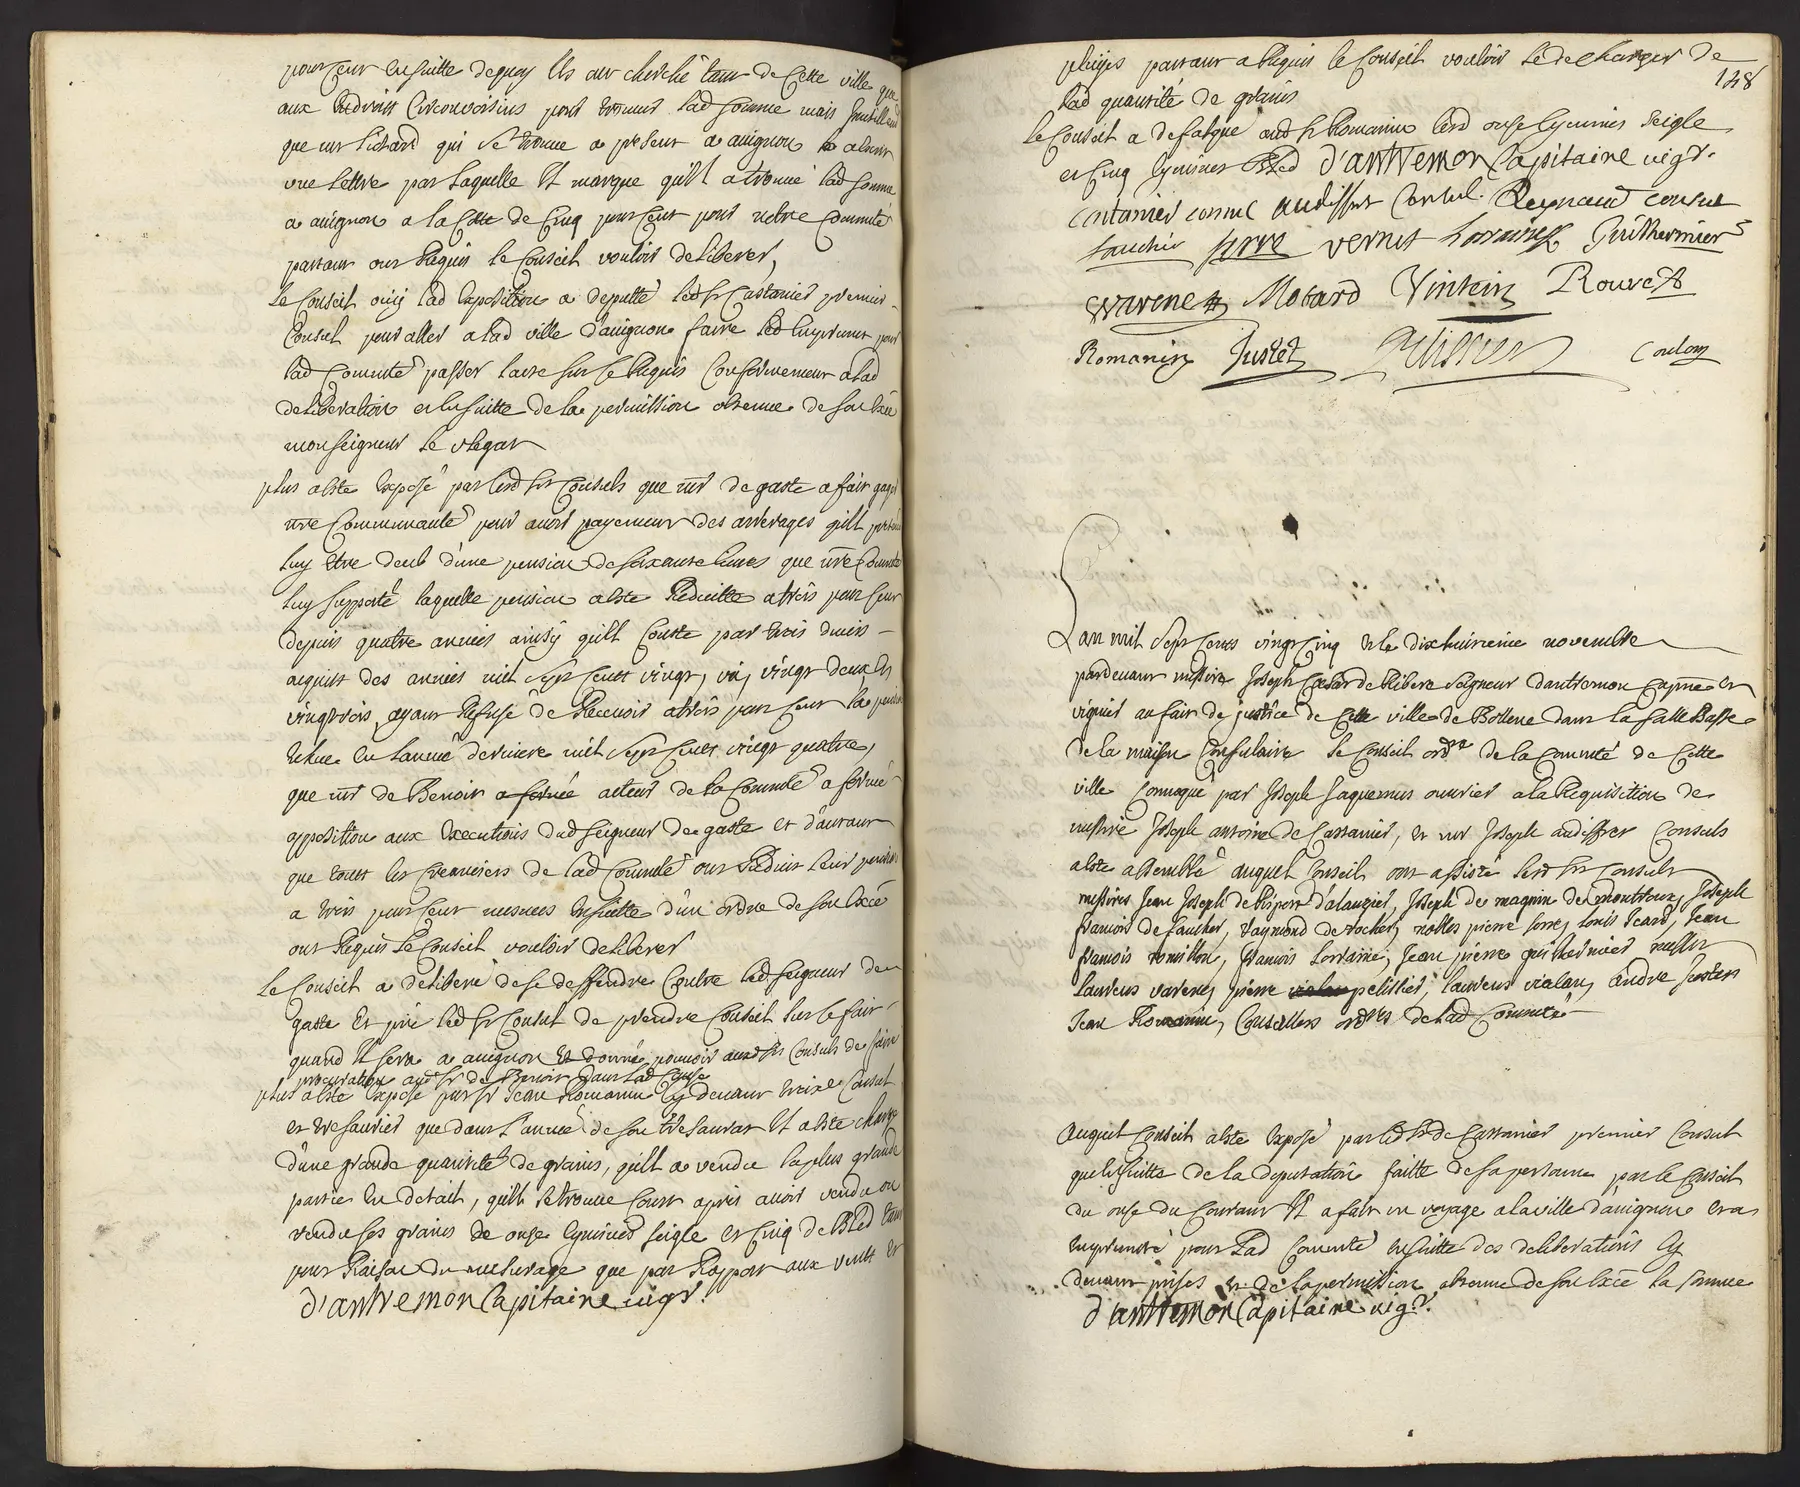 pour cent ensuitte de quoy ils ont cherché tant de cette ville que
aux endroits circonvoisins pour trouver lad somme mais
que mr lickard qui se trouve a present a avignon a
une lettre par laquelle il marque quil a trouvé lad somme
a avignon a la cotte de cinq pour cent pour notre communté
partant ont requis le conseil vouloir deliberer,
Le conseil ouy lad exposition a deputté led sr Castanier premier
Consul pour aller a lad ville d'avignon faire led emprunt pour
lad commté passer lacte sur ce requis conformement a lad
deliberation et ensuitte de la permission obtenue de son exce
monseigneur le vlegat
plus a esté exposé par lesd srs Consuls que mr de gaste a fait gager
nre Communauté pour avoir payement des arrerages quil pretend
luy etre deub d'une pension de soixante livres que nre commté
luy supporte laquelle pension a esté reduitte a trois pour cent
depuis quatre années ainsy quil conste par trois divers
acquits des années mil sept cents vingt, un, vingt deux et
vingt trois, ayant refusé de recevoir a trois pour cent la pension
echue en lannée derniere mil sept cents vingt quatre,
que mr de Benoit a formé acteur de la commté a formé
opposition aux executions dud seigneur de gaste et d'autant
que touts les creanciers de lad commté ont reduit leur pension
a trois pour cent ensuitte d'un ordre de son exce
ont requis le conseil vouloir deliberer
Le Conseil a deliberé de se deffendre contre led seigneur de
gaste et prié led sr Consul de prendre conseil sur ce fait
quand il sera a avignon et donné pouvoir auxd srs Consuls de faire
procuration aud sr de Benoit dans lad cause
plus a esté exposé par sr Jean Romanin cy devant troise Consul
et tresaurier que dans l'année de son tresaurat il a esté chargé
d'une grande quantité de grains, quil a vendu la plus grande
partie en detail, quil se trouve court apres avoir vendu ou
vendu ses grains de onze eymines seigle et cinq de bled tant
pour raison du mesurage que par rapport aux vents et
d'antremon Capitaine vigr.
pluyes partant a requis le Conseil vouloir le decharger de
148
lad quantité de grains
Le Conseil a defalqué aud sr Romanin lesd onze eymines seigle
et cinq eymines bled d'antremon Capitaine vigr.
Castanier consul audiffret Consul. Reynaud consul
fauchier serre vernet Lorraine Guilhermier
Warene Motard Vintein Rouvet
Romanin Justet Pelissier Coulom
Lan mil sept cents vingt cinq et le dix huitieme novembre
pardevant messire Joseph Cesar de Ribere seigneur dantremon capne et
viguier au fait de justice de cette ville de Bollene dans la salle basse
de la maison consulaire le conseil ordre de la commté de cette
ville convoqué par Joseph Jaquemus ouvrier a la requisition de
messire Joseph antoine de Castanier, et mr Joseph audiffret Consuls
a esté assemblé auquel conseil ont assisté lesd srs consuls
messires Jean Joseph de d'alauzier, Joseph de magnin de montroux, Joseph
francois de fauchier, raymond de rocher, nobles pierre serre, louis Icard, Jean
francois roussillon, francois Lorraine, Jean pierre guilhermier messrs
laurens varene, pierre pelissier, laurens vialan, andre Justet
Jean Romanin, Conseillers ordres de lad commté
Auquel conseil a esté exposé par led sr de Castanier premier Consul
quensuitte de la deputation faitte de sa personne par le conseil
du onze du courant il a fait un voyage a la ville d'avignon et a
emprunté pour lad commté ensuitte des deliberations cy
devant prises et de la permission obtenue de son exce la somme
d'antremon Capitaine vigr.